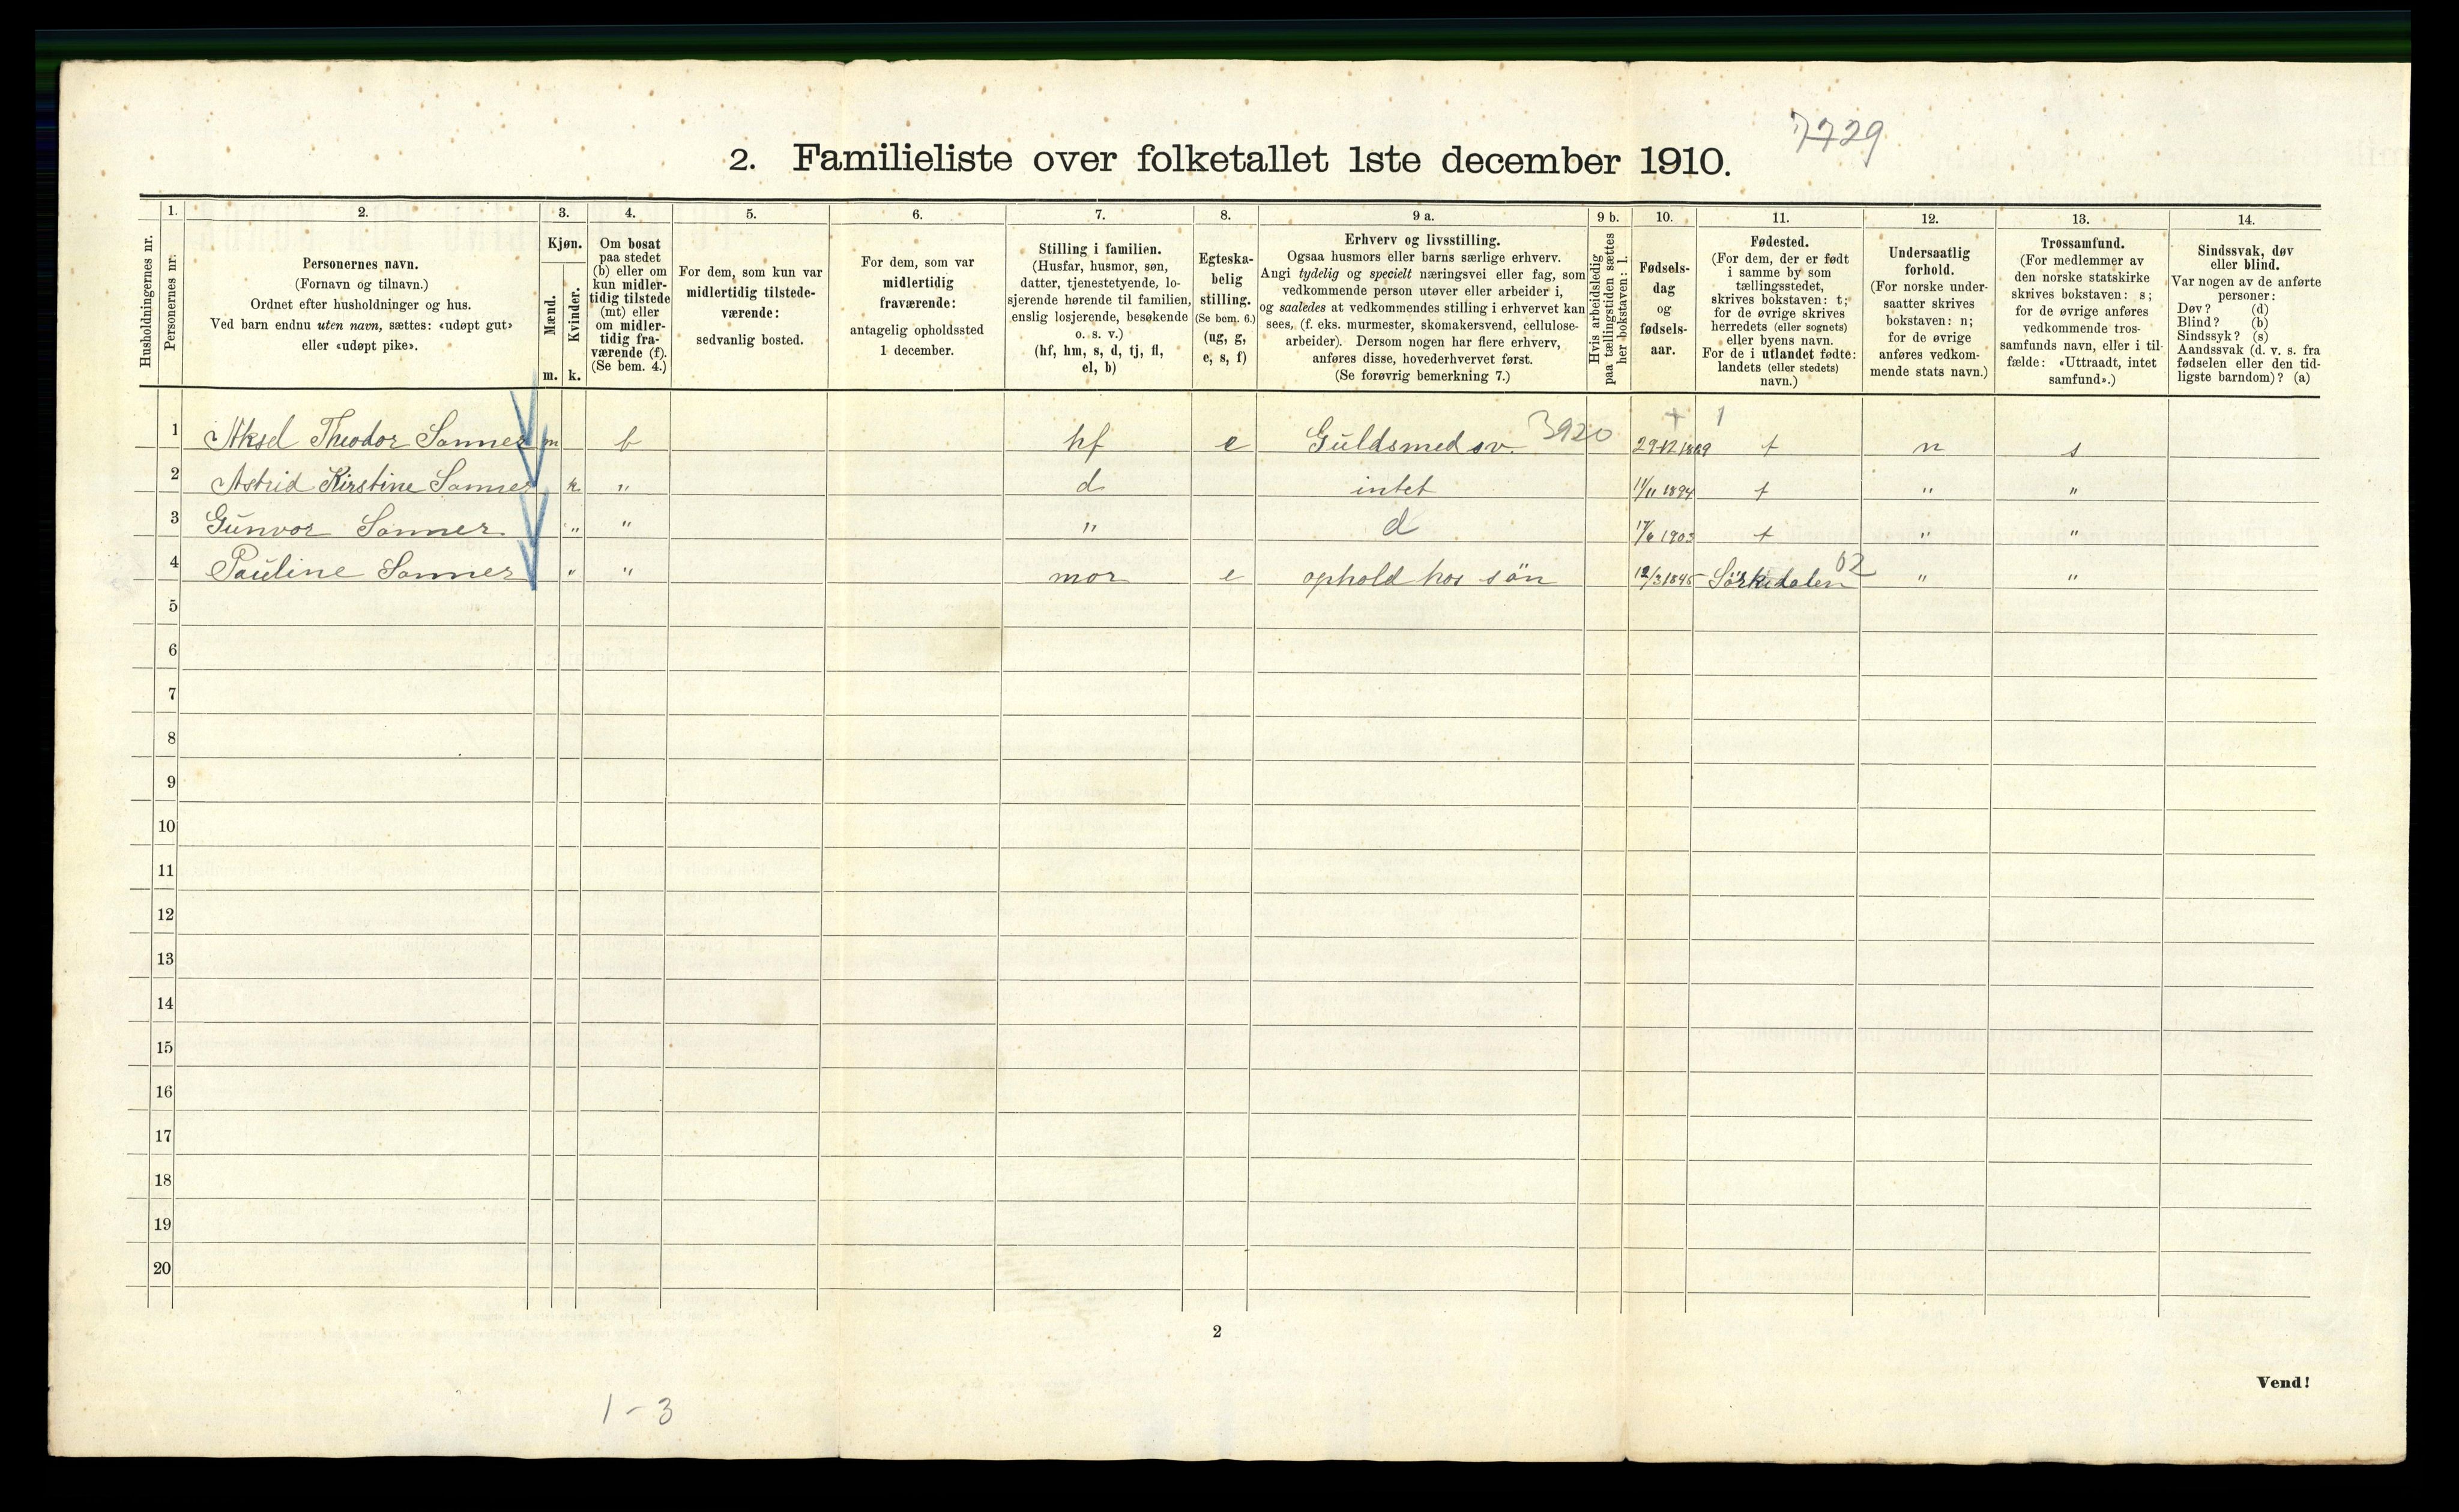 7729
2. Familieliste over folketallet 1ste december 1910.
Husholdningernes nr.
1.
Personernes nr.
2.
Personernes navn.
(Fornavn og tilnavn.)
Ordnet efter husholdninger og hus.
Ved barn endnu uten navn, sættes: «udøpt gut»
eller «udøpt pike».
3.
Kjøn.
Mænd.
Kvinder.
m. k.
4.
Om bosat
paa stedet
(b) eller om
kun midler-
tidig tilstede
(mt) eller
om midler-
tidig fra-
værende (f).
(Se bem. 4.)
5.
For dem, som kun var
midlertidig tilstede-
værende:
sedvanlig bosted.
6.
For dem, som var
midlertidig
fraværende:
antagelig opholdssted
1 december.
7.
Stilling i familien.
(Husfar, husmor, søn,
datter, tjenestetyende, lo-
sjerende hørende til familien,
enslig losjerende, besøkende
o. s. v.)
(hf, hm, s, d, tj, fl,
el, b)
8.
Egteska-
belig
stilling.
(Se bem. 6.)
(ug, g,
e, s, f)
9 a.
Erhverv og livsstilling.
Ogsaa husmors eller barns særlige erhverv.
Angi tydelig og specielt næringsvei eller fag, som
vedkommende person utøver eller arbeider i,
og saaledes at vedkommendes stilling i erhvervet kan
sees, (f. eks. murmester, skomakersvend, cellulose-
arbeider). Dersom nogen har flere erhverv,
anføres disse, hovederhvervet først.
(Se forøvrig bemerkning 7.)
9 b.
Hvis arbeidsledig
paa tællingstiden sættes
her bokstaven: l.
10.
Fødsels-
dag
og
fødsels-
aar.
11.
Fødested.
(For dem, der er født
i samme by som
tællingsstedet,
skrives bokstaven: t;
for de øvrige skrives
herredets (eller sognets)
eller byens navn.
For de i utlandet fødte:
landets (eller stedets)
navn.)
12.
Undersaatlig
forhold.
(For norske under-
saatter skrives
bokstaven: n;
for de øvrige
anføres vedkom-
mende stats navn.)
13.
Trossamfund.
(For medlemmer av
den norske statskirke
skrives bokstaven: s;
for de øvrige anføres
vedkommende tros-
samfunds navn, eller i til-
fælde: «Uttraadt, intet
samfund».)
14.
Sindssvak, døv
eller blind.
Var nogen av de anførte
personer:
Døv? (d)
Blind? (b)
Sindssyk? (s)
Aandssvak (d. v. s. fra
fødselen eller den tid-
ligste barndom)? (a)
+ 1
1 Aksel Theodor Sanner m b hf e Guldsmedsv. 3920 29-12 1869 t n s
2 Astrid Kirstine Sanner k " d intet 11/11 1894 t " "
3 Gunvor Sanner " " " d 17/6 1903 t " "
4 Pauline Sanner " " mor e ophold hos sön 12/3 1845 Sörkedalen 02 " "
5
6
7
8
9
10
11
12
13
14
15
16
17
18
19
20
2
Vend!
1-3